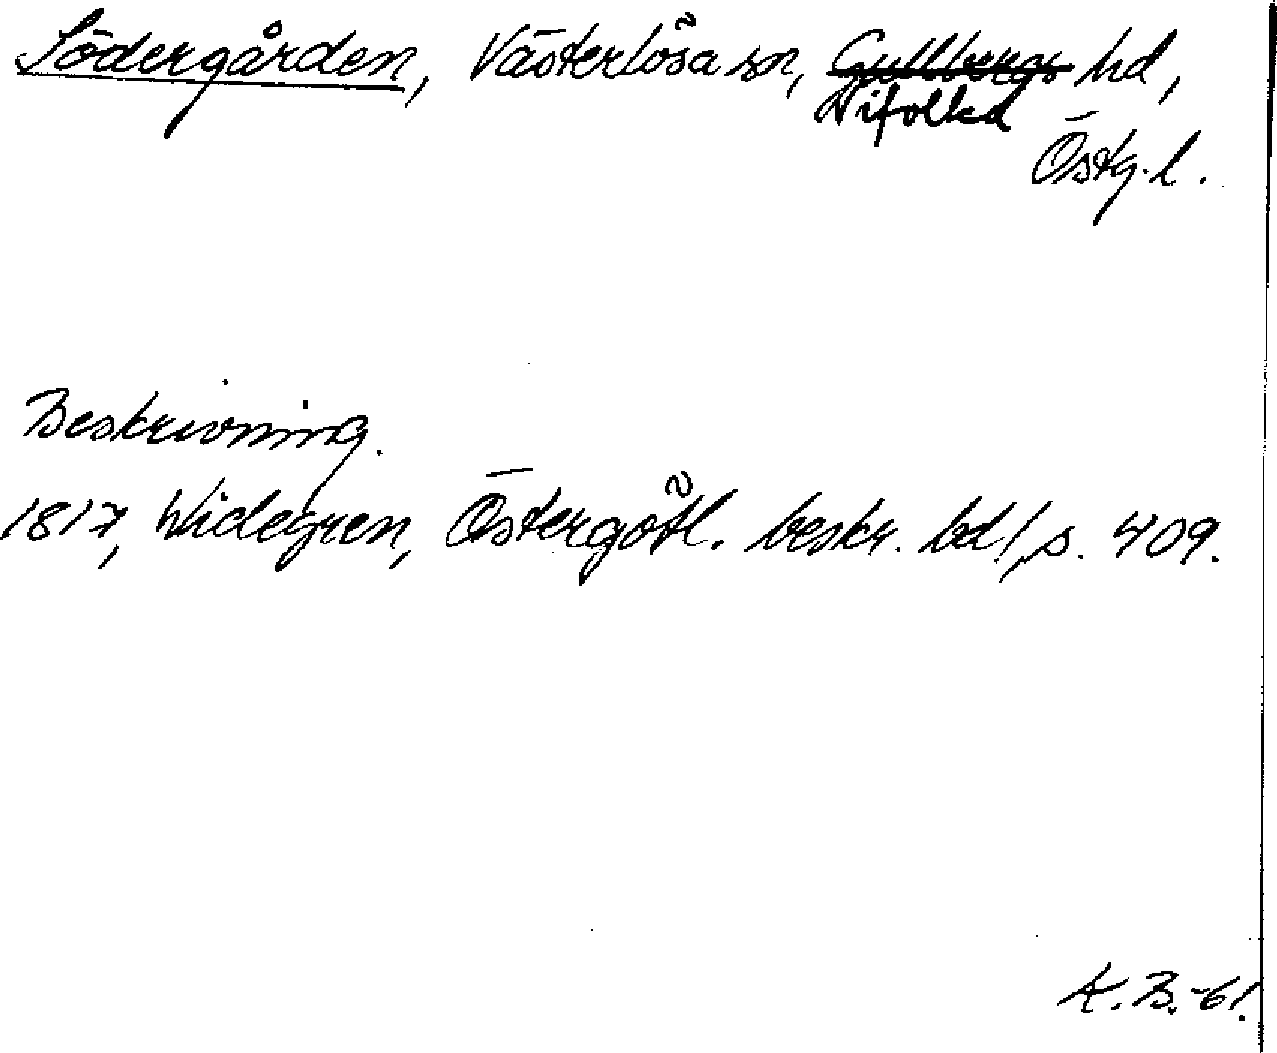 Södergården, Västerlösa sn, Gullbergs hd,
Vifolka
Östg. l.
Beskrivning.
1817, Widegren, Östergötl. beskr. bd 1, s. 409.
K. B. -61.